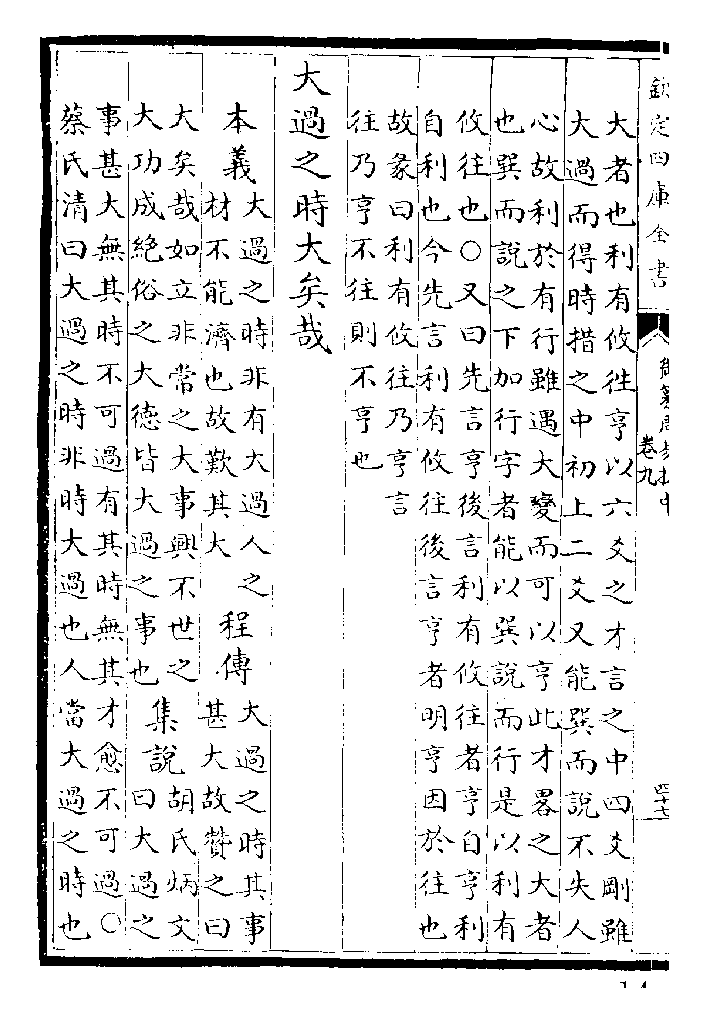 欽定四庫全書
御纂周易折中
卷九
四十七
大者也利有攸往亨以六爻之才言之中四爻剛雖
大過而得時措之中初上二爻又能巽而說不失人
心故利於有行雖遇大變而可以亨此才畧之大者
也巽而說之下加行字者能以巽說而行是以利有
攸往也○又曰先言亨後言利有攸往者亨自亨利
自利也今先言利有攸往後言亨者明亨因於往也
故彖曰利有攸往乃亨言
往乃亨不往則不亨也
大過之時大矣哉
本義
大過之時非有大過人之
材不能濟也故歎其大
程傳
大過之時其事
甚大故贊之曰
大矣哉如立非常之大事興不世之
大功成絶俗之大德皆大過之事也
集說
胡氏炳文
曰大過之
事甚大無其時不可過有其時無其才愈不可過○
蔡氏清曰大過之時非時大過也人當大過之時也